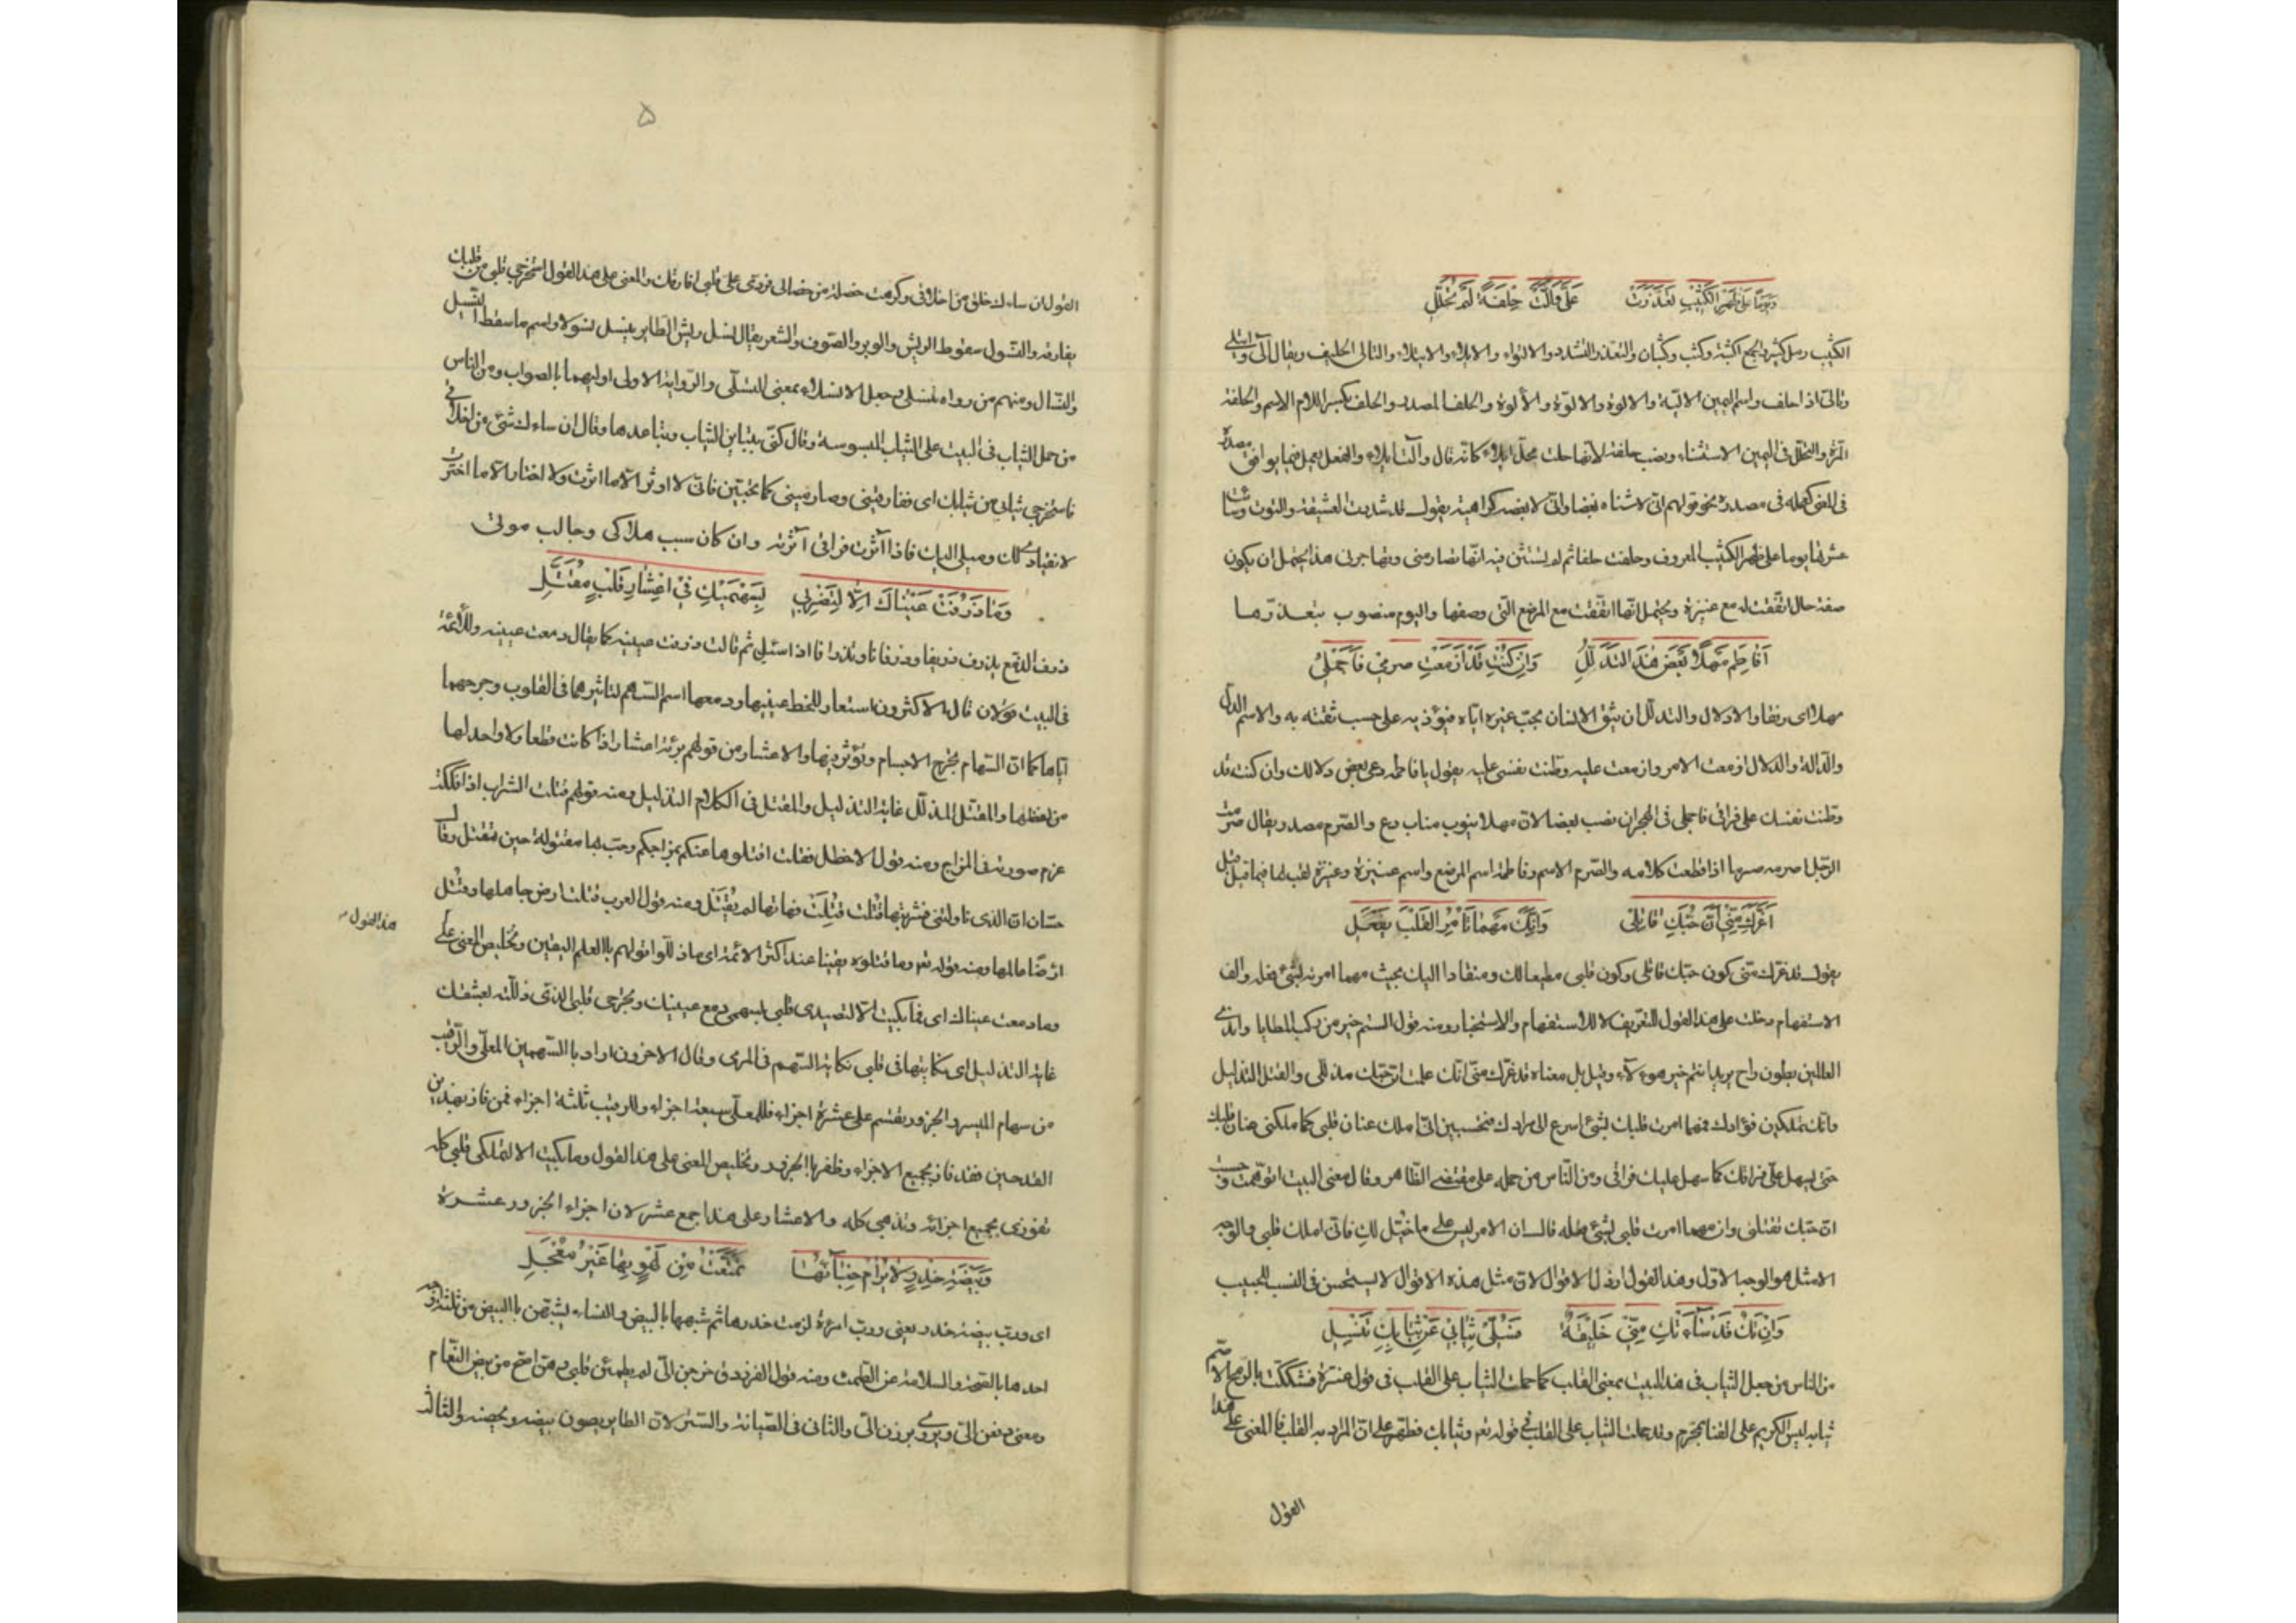 ويوما على ظهر الكثيب تعذرت علي وآلت حلفة لم تحلل
الكثيب رمل كثير والجمع اكثبة وكثب وكثبان والتعذر التشدد والالتواء والايلاء والايتلاء والتالى الحليف ويقال آلى وايتلى
وتالى اذا حلف واسم اليمين الالية والالوة والالوة والألوة والحلف المصدر والحلف بكسر اللام الاسم والحلفة
المرة والتحلل فى اليمين الاستثناء ونصب حلفة لانها حلت محل ايلاء كانه قال وآلت ايلاء والفعل يعمل فيما يوافق مصدره
فى المعنى كعمله فى مصدره نحو قولهم انى لاشناه بغضا وانى لابغضه كراهية يقول قد تشددت العشيقة والتوت وساءت
عشرتها يوما على ظهر الكثيب المعروف وحلفت حلفا ثم لم تستثن فيه انها تصارمنى وتهاجرنى هذا ويحتمل ان يكون
صفة حال اتفقت له مع عنيزة ويحتمل انها اتفقت مع المرضع التى وصفها واليوم منصوب بتعذرها
أفاطم مهلا بعض هذا التدلل وإن كنت قد أزمعت صرمي فأجملي
مهلا اى رفقا والادلال والتدلل ان يثق الانسان بحب غيره اياه فيؤذيه على حسب ثقته به والاسم الدل
والدالة والدلال ازمعت الامر وازمعت عليه وطنت نفسى عليه يقول يا فاطمه دعى بعض دلالك وان كنت قد
وطنت نفسك على فراقى فاجملى فى الهجران نصب بعضا لان مهلا ينوب مناب دع والصرم مصدر يقال صرمت
الرجل اصرمه صرما اذا قطعت كلامه والصرم الاسم وفاطمة اسم المرضع واسم عنيزة وعنيزة لقب لها فيما قيل
أغرك مني أن حبك قاتلي وأنك مهما تأمري القلب يفعل
يقول قد غرك منى كون حبك قاتلى وكون قلبى مطيعا لك ومنقادا اليك بحيث مهما امرته بشئ فعله والف
الاستفهام دخلت على هذا القول للتقرير لا للاستفهام والاستخبار ومنه قول الستم خير من ركب المطايا واندى
العالمين بطون راح يريد انتم خير هؤلاء وقيل بل معناه قد غرك منى انك علمت ان حبك مذللى والقتل التذليل
وانك تملكين فؤادك فمهما امرت قلبك بشئ اسرع الى مرادك فتحسبين انى املك عنان قلبى كما ملكتى عنان قلبك
حتى يسهل على فراقك كما سهل عليك فراقى ومن الناس من حمله على مقتضى الظاهر وقال معنى البيت اتوهمت وحسبت
ان حبك يقتلنى وان مهما امرت قلبى بشئ فعله قال ان الامر ليس على ما خيل لك فانى املك قلبى والوجه
الامثل هو الوجه الاول وهذا القول ارذل الاقوال لان مثل هذه الاقوال لا يستحسن فى النسيب بالحبيب
وإن تك قد ساءتك مني خليقة فسلي ثيابي عن ثيابك تنسل
من الناس من جعل الثياب فى هذا البيت بمعنى القلب كما حملت الثياب على القلب فى قول عنترة فشككت بالرمح الاصم
ثيابه ليس الكريم على القنا بمحرم وقد حملت الثياب على القلب فى قوله تع وثيابك فطهر على ان المراد به القلب فالمعنى على هذا
القول
۵
القول ان ساءك خلق من اخلاقى وكرهت خصلة من خصالى فردى على قلبى افارقك والمعنى على هذا القول استخرجى قلبى من قلبك
يفارقه والنسول سقوط الريش والوبر والصوف والشعر يقال نسل ريش الطاير ينسل نسولا واسم ما سقط النسيل
والنسال ومنهم من رواه تنسلى وجعل الانسلاء بمعنى التسلى والرواية الاولى اوليهما بالصواب ومن الناس
من حمل الثياب فى البيت على الثياب الملبوسة وقال كنى بتباين الثياب وتباعدها وقال ان ساءك شئ من اخلاقى
فاستخرجى ثيابى من ثيابك اى ففارقينى وصارمينى كما تحبين فانى لا اوثر الا ما اثرت ولا اختار الا ما اخترت
لانقيادى لك وميلى اليك فاذا آثرت فراقى آثرته وان كان سبب هلاكى وجالب موتى
وما ذرفت عيناك إلا لتضربي بسهميك في أعشار قلب مقتل
ذرف الدمع يذرف ذريفا وذرفانا وتذرافا اذا سئل ثم قالت ذرفت عينه كما يقال دمعت عينه وللائمة
فى البيت قولان قال الاكثرون استعار للحظ عينيها ودمعهما اسم السهم لتاثيرهما فى القلوب وجرحهما
اياها كما ان السهام تجرح الاجسام وتؤثر فيها والاعشار من قولهم برمة اعشار اذا كانت قطعا ولا واحد لها
من لفظها والمقتل المذلل غاية التذليل والقتل فى الكلام التذليل ومنه قولهم قتلت الشراب اذا فللت
غرم صورته فى المزاج ومنه قول الاخطل فقلت اقتلوها عنكم بمزاجكم وحب بها مقتولة حين تقتل وقال
حسان ان الذى ناولتنى فشربتها قتلت قتلت فهاتها لم تقتل ومنه قول العرب قتلت ارض جاهلها وقتل
ارضا عالمها ومنه قوله تع وما قتلوه يقينا عند اكثر الائمة اى ما ذللوا قولهم بالعلم اليقين وتلخيص المعنى على
هذا القول
وما دمعت عيناك اى فما بكيت الا لتصيدى قلبى بسهمى دمع عينيك وتجرحى قلبى الذى ذللته بعشقك
غاية التذليل اى نكايتها فى قلبى نكاية السهم فى المرمى وقال الاخرون اراد بالسهمين المعلى والرقيب
من سهام الميسر والجزور يقسم على عشرة اجزاء فللمعلى سبعة اجزاء وللرقيب ثلثة اجزاء فمن فاز بهذين
القدحين فقد فاز بجميع الاجزاء وظفر بالجزور وتلخيص المعنى على هذا القول وما بكيت الا لتملكى قلبى كله
تفوزى بجميع اجزائه وتذهبى كله والاعشار على هذا جمع عشر لان اجزاء الجزور عشرة
وبيضة خدر لا يرام خباؤها تمتعت من لهو بها غير معجل
اى ورب بيضة خدر يعنى ورب امرءة لزمت خدرها ثم شبهها بالبيض والنساء يشبهن بالبيض من ثلثة اوجه
احدها بالصحة والسلامة عن الطمث ومنه قول الفرزدق خرجن الى لم يطمثن قبلى وهن اصح من بيض النعام
ومعنى دفعن الى ويروى برزن الى والثانى فى الصيانة والستر لان الطاير يصون بيضه ويحضنه والثالث